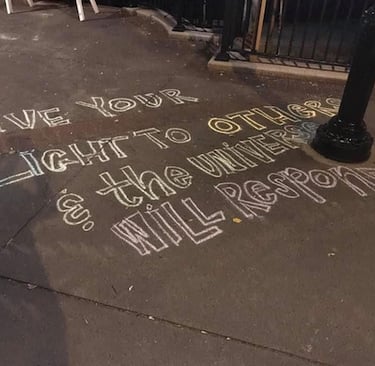 AVE YOUR
LIGHT TO OTHERS
& the UNIVERSE
WILL RESPOND